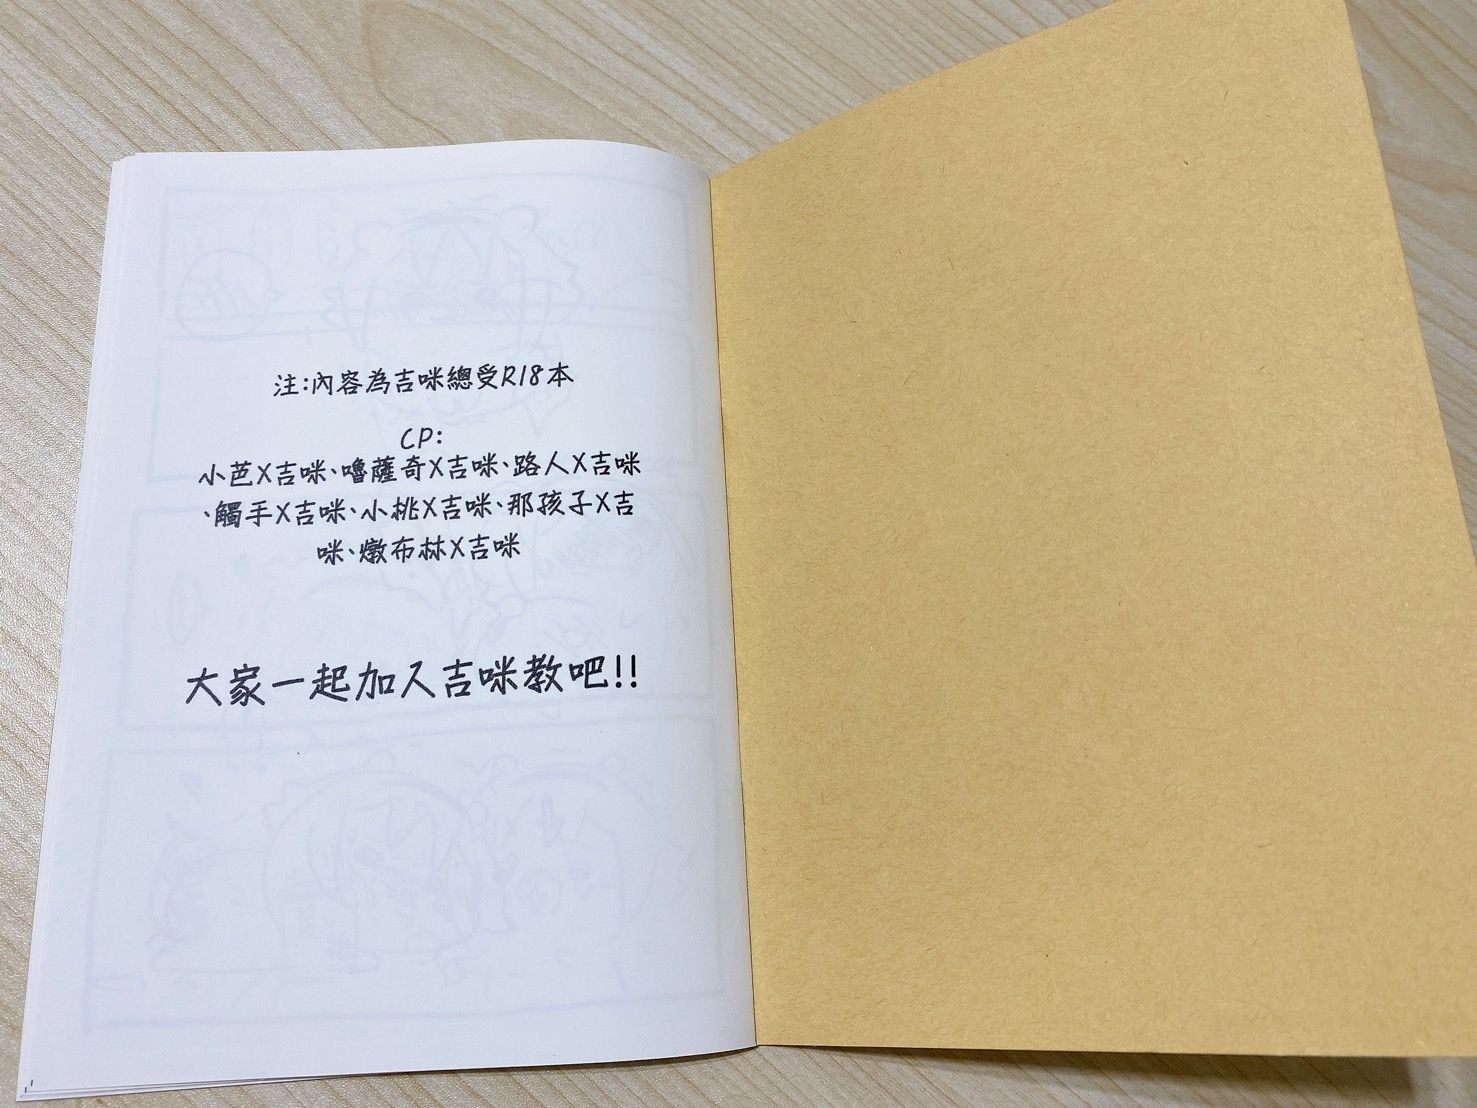 注:內容為吉咪總受R18本
CP:
小芭X吉咪、嚕薩奇X吉咪、路人X吉咪
、觸手X吉咪、小桃X吉咪、那孩子X吉
咪、燉布林X吉咪
大家一起加入吉咪教吧!!